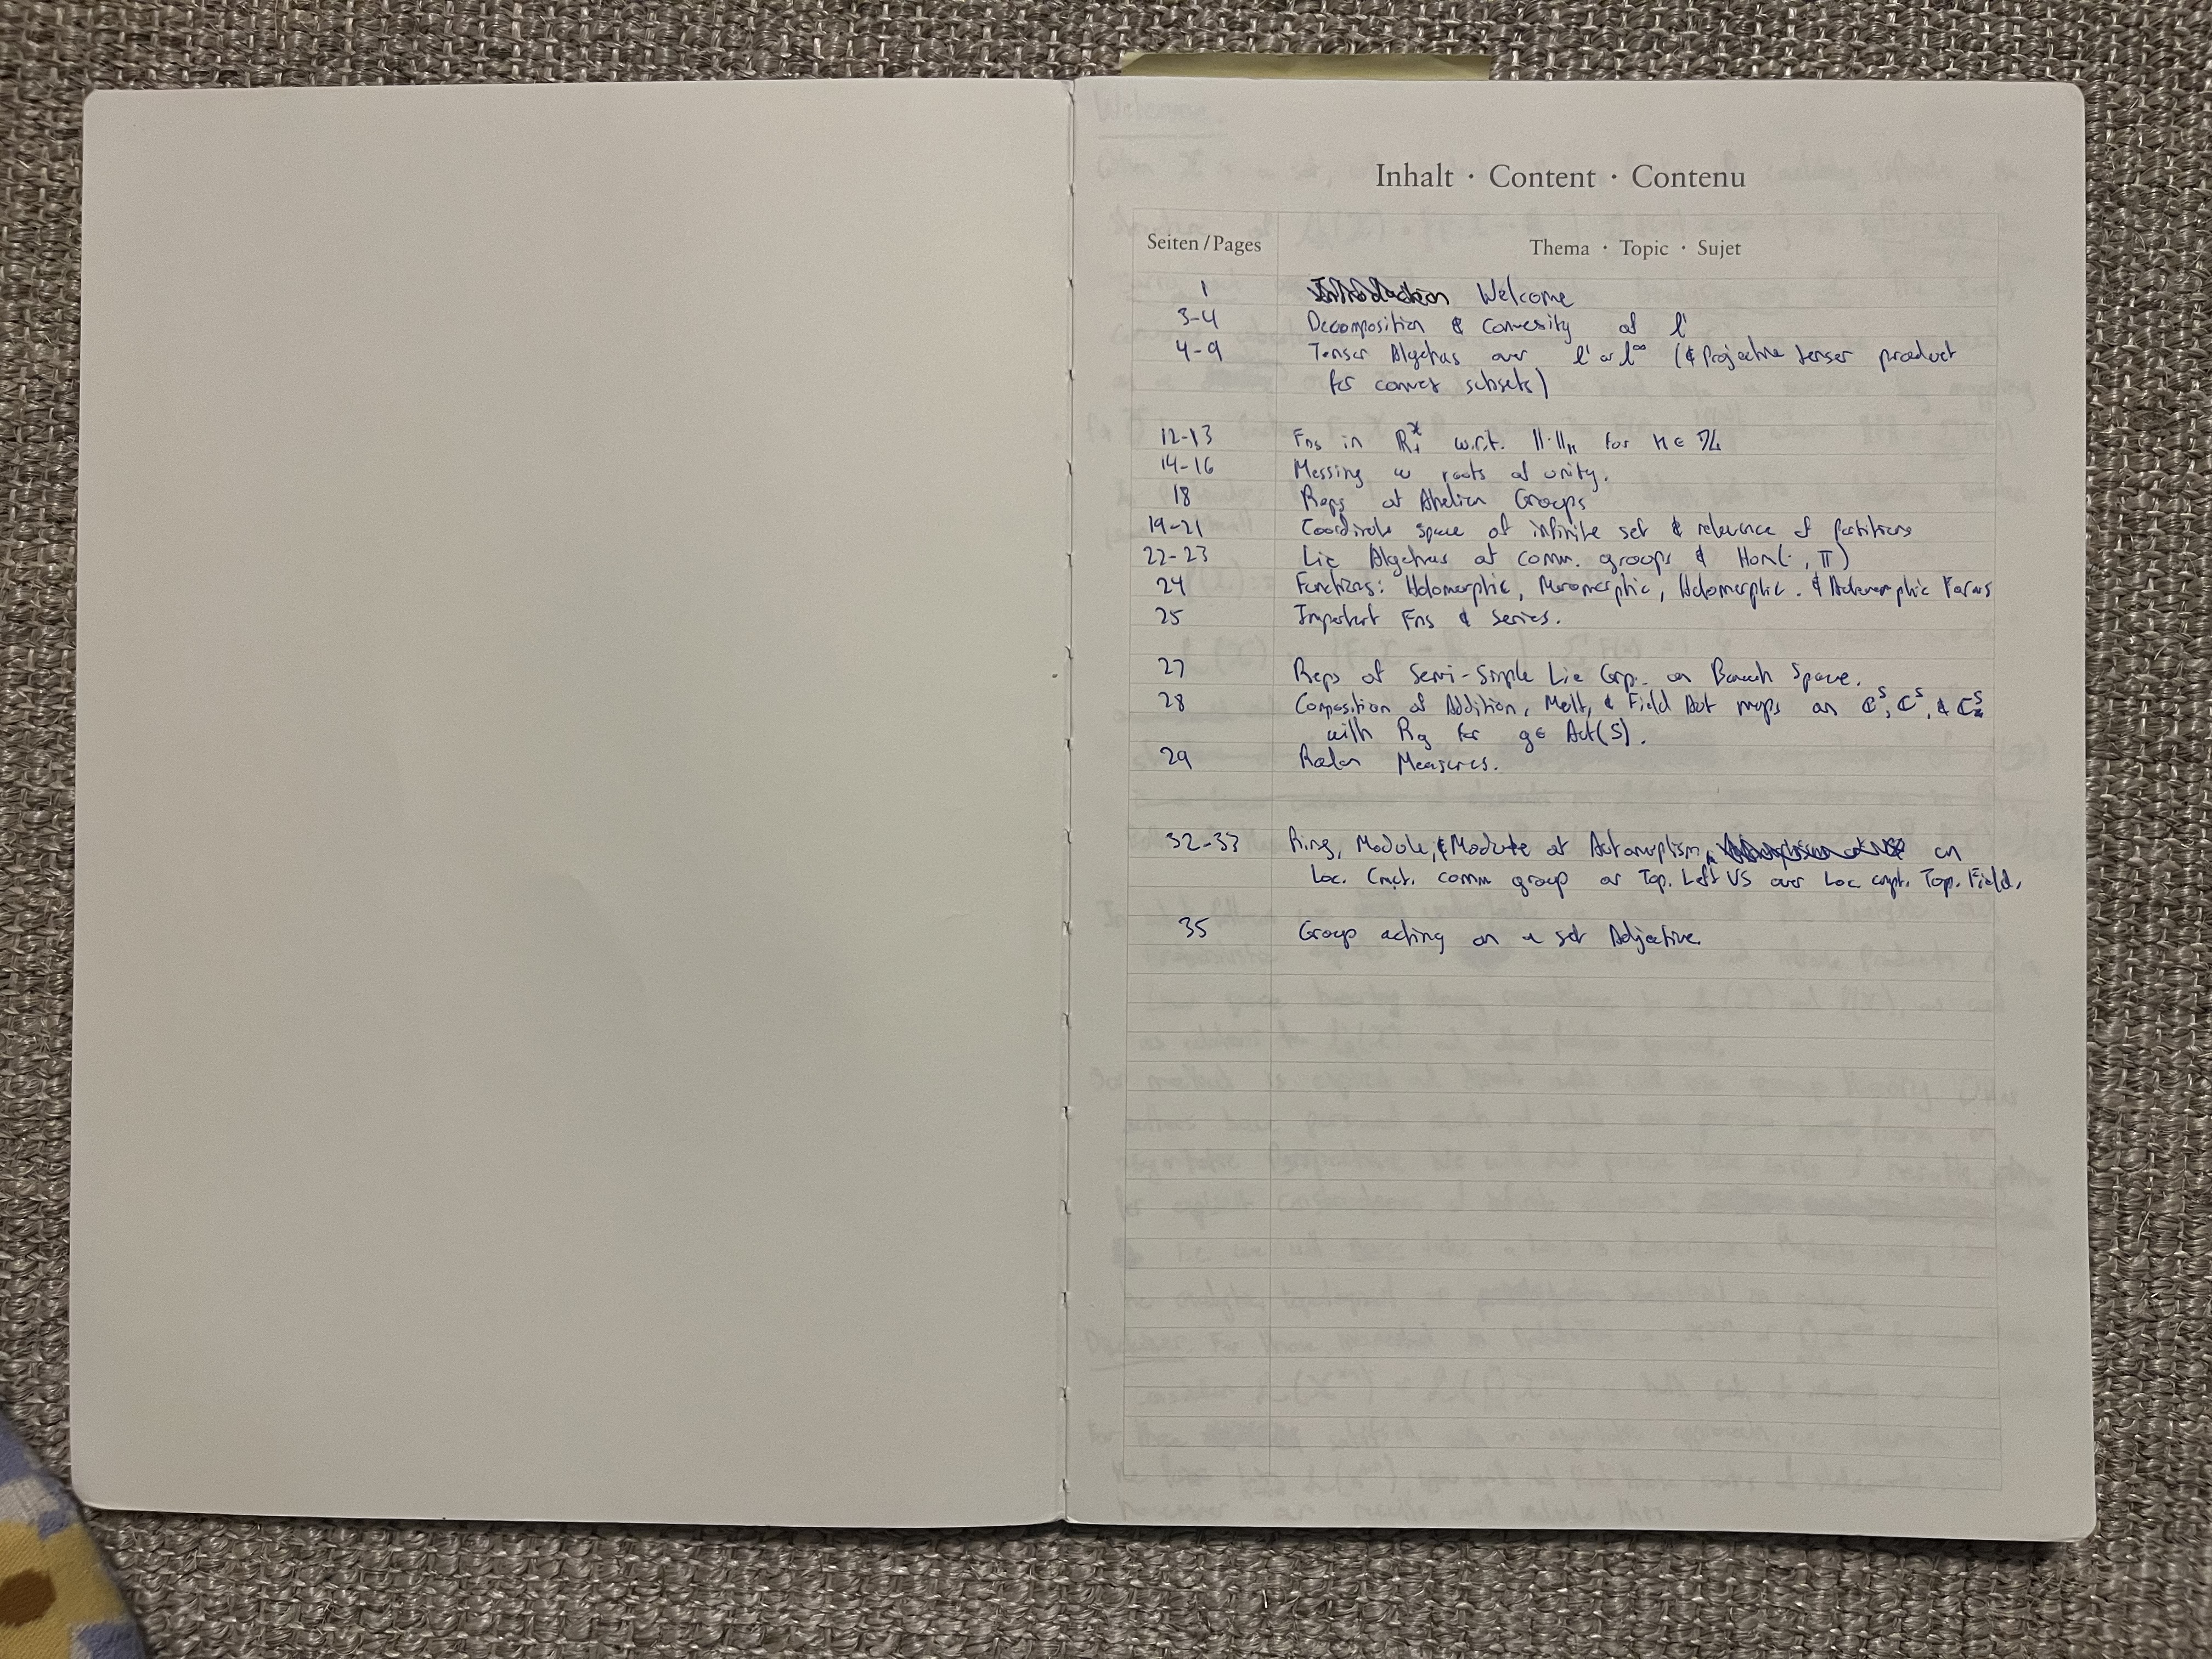 Inhalt · Content · Contenu
Seiten / Pages Thema · Topic · Sujet
1 Welcome
3-4 Decomposition & Convexity of l'
4-9 Tensor Algebras over l' or l^∞ (& Projective tensor product
for convex subsets)
12-13 Fns in w.r.t. ||·||ₙ for n ∈ ℤ
14-16 Messing w roots of unity.
18 Reps of Abelian Groups
19-21 Coordinate space of infinite set & relevance of partitions
22-23 Lie Algebras of comm. groups & Hom(·, π)
24 Functions: Holomorphic, Meromorphic, & Forms
25 Important Fns & series.
27 Reps of Semi-Simple Lie Grp. on Banach Space.
28 Composition of Addition, Mult, & Field Aut maps on & 
with Rg for g ∈ Aut(S).
29 Radon Measures.
32-33 Ring, Module, & Module of Automorphism on
Loc. Cmpt. comm group or Top. Left VS over Loc cmpt. Top. Field,
35 Group acting on a set Adjective.